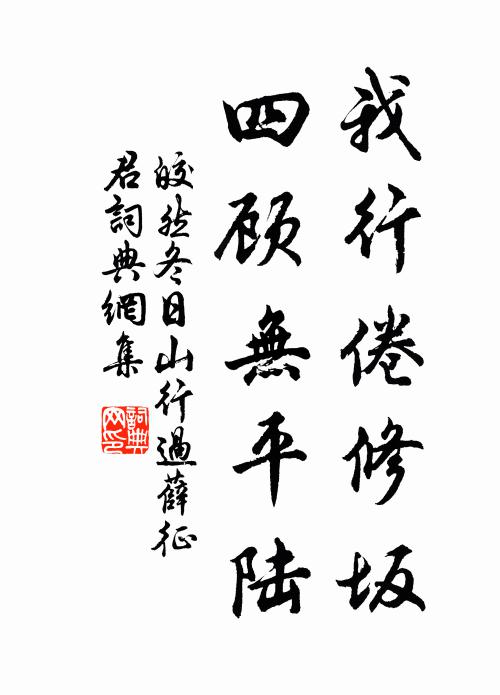 我行倦修坂
四顾無平陆
皎然冬日山行過薛征
君詞典網集
詞典网印